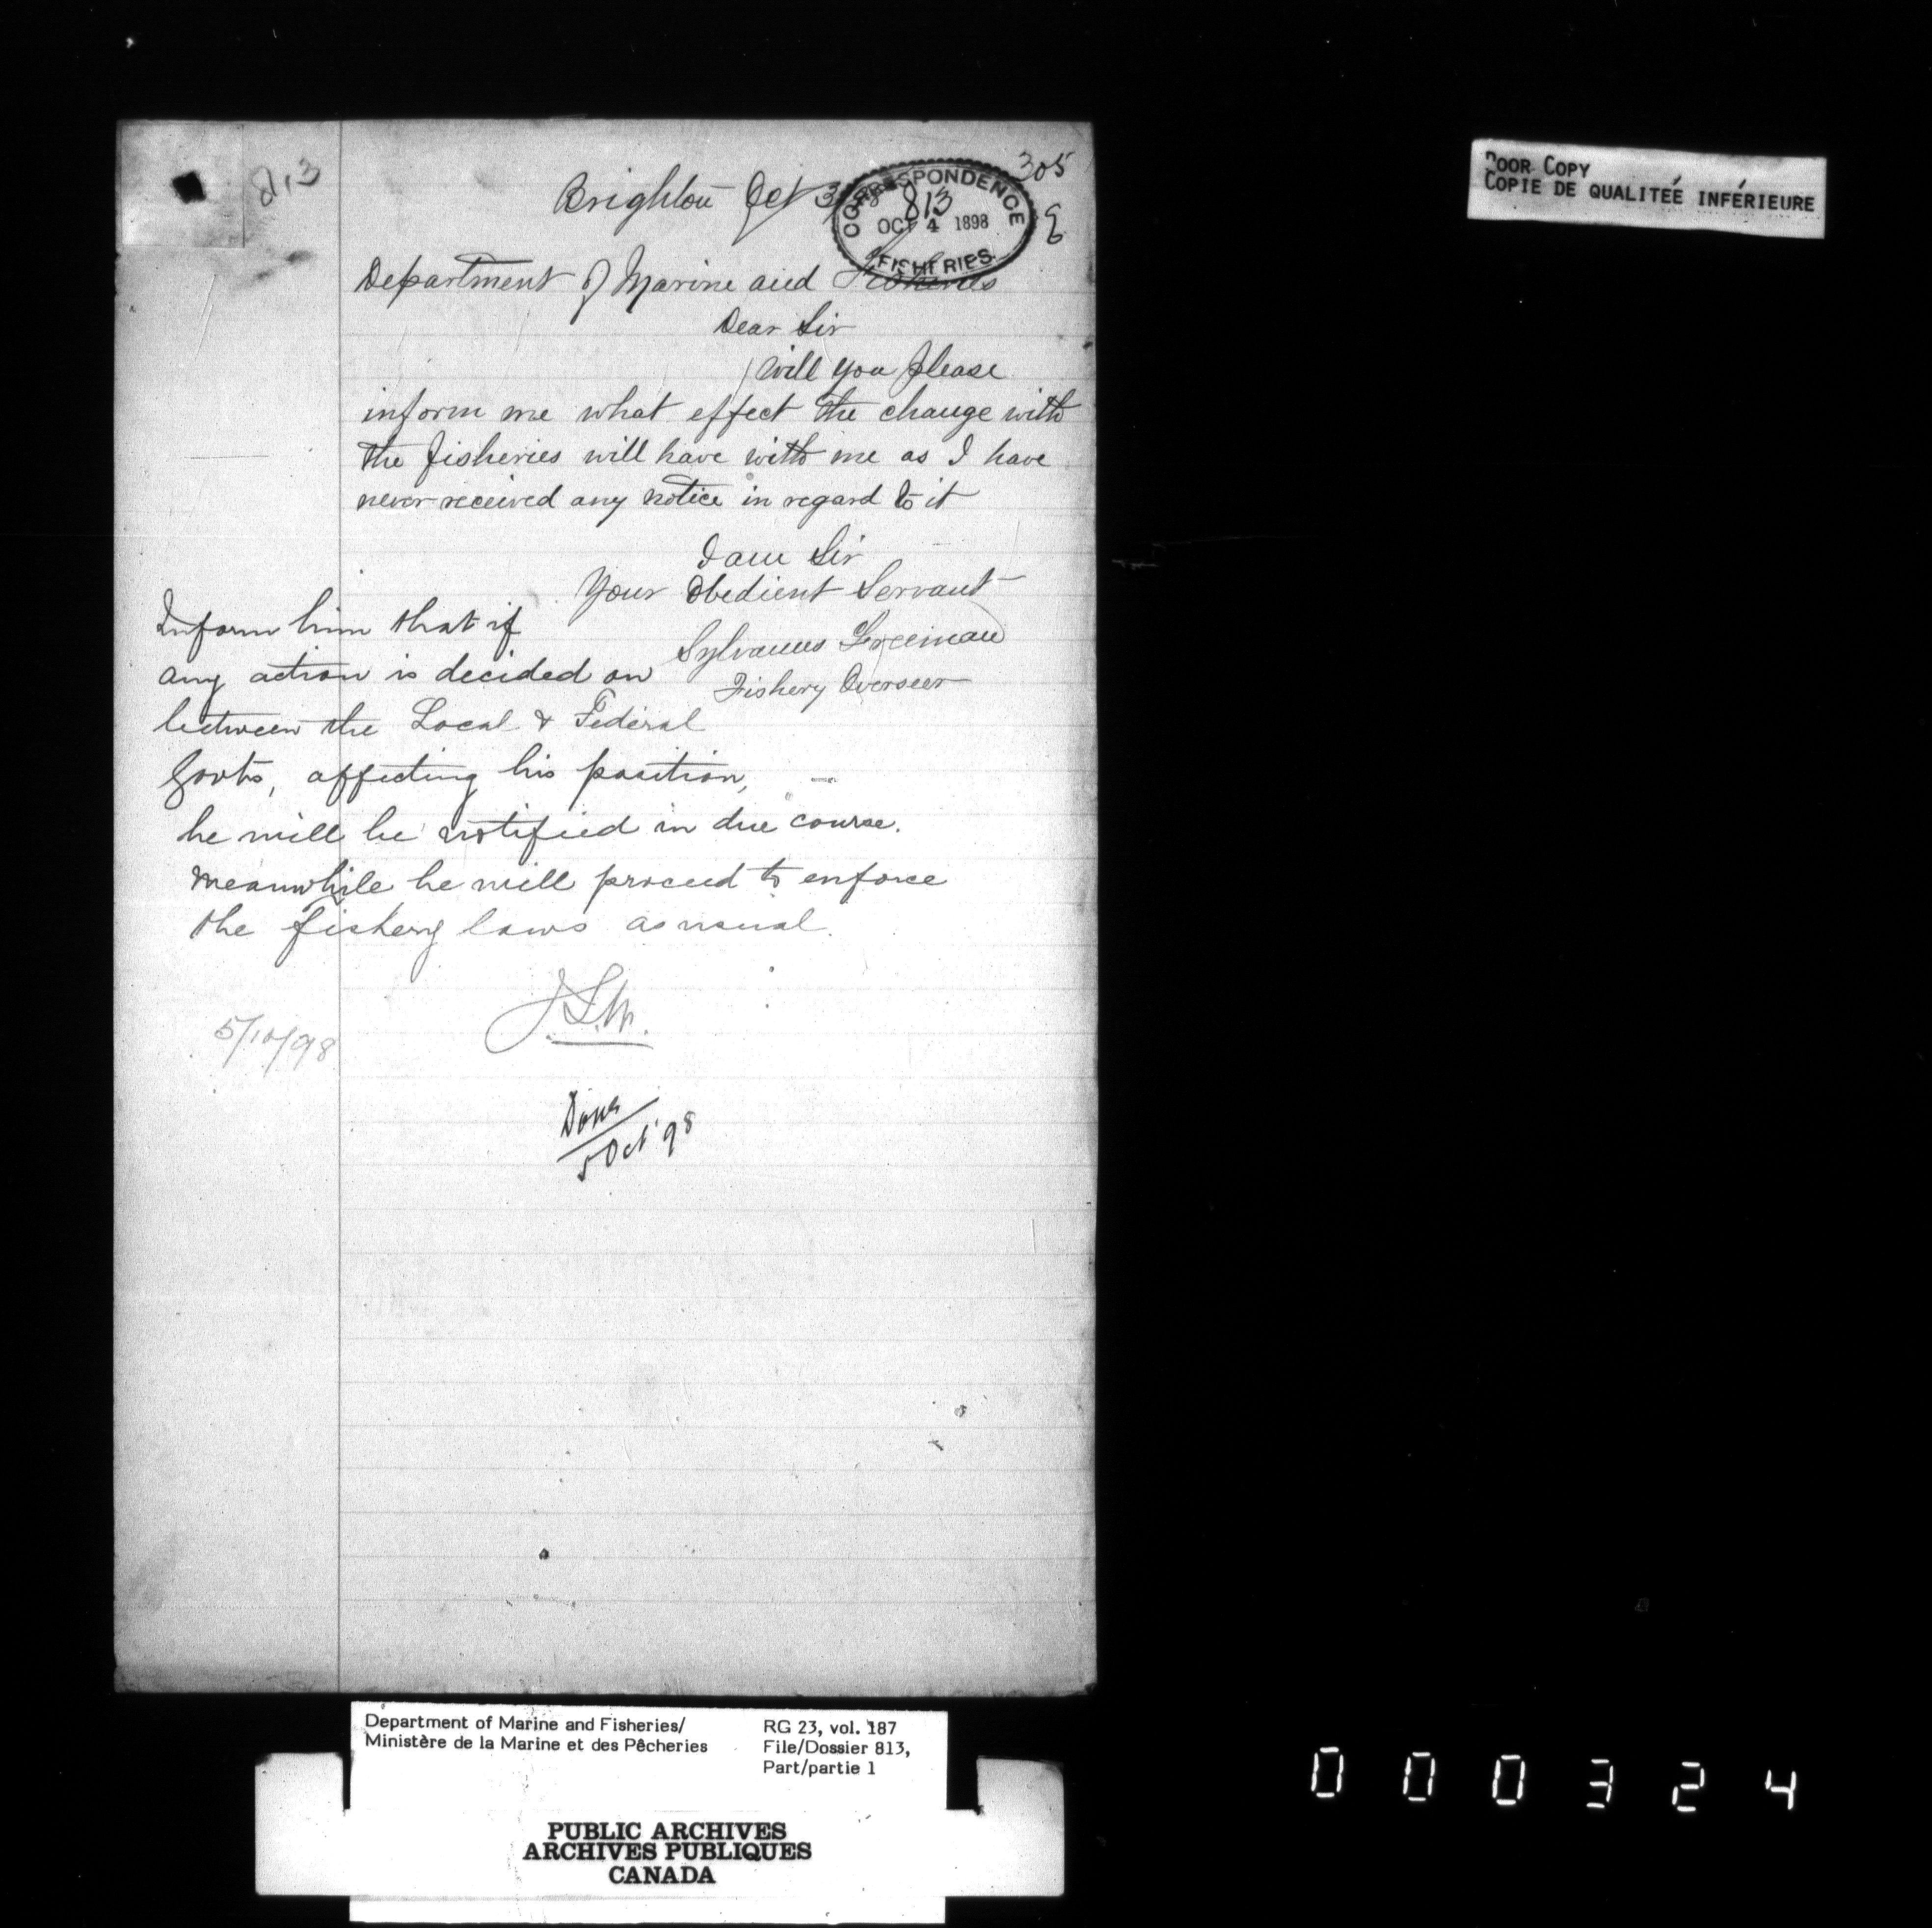 813
305
Brighton Oct 3/98
CORRESPONDENCE
813
OCT 4 1898
FISHERIES.
Department of Marine and Fisheries
Dear Sir
Will you please
inform me what effect the change with
the fisheries will have with me as I have
never received any notice in regard to it
I am Sir
Your Obedient Servant
Sylvanus Freeman
Fishery Overseer
Inform him that if
any action is decided on
between the Local & Federal
Govts, affecting his position,
he will be notified in due course.
Meanwhile he will proceed to enforce
the fishery laws as usual.
5/10/98
Done
5 Oct '98
POOR COPY
COPIE DE QUALITEÉ INFÉRIEURE
Department of Marine and Fisheries/
Ministère de la Marine et des Pêcheries
RG 23, vol. 187
File/Dossier 813,
Part/partie 1
PUBLIC ARCHIVES
ARCHIVES PUBLIQUES
CANADA
000324